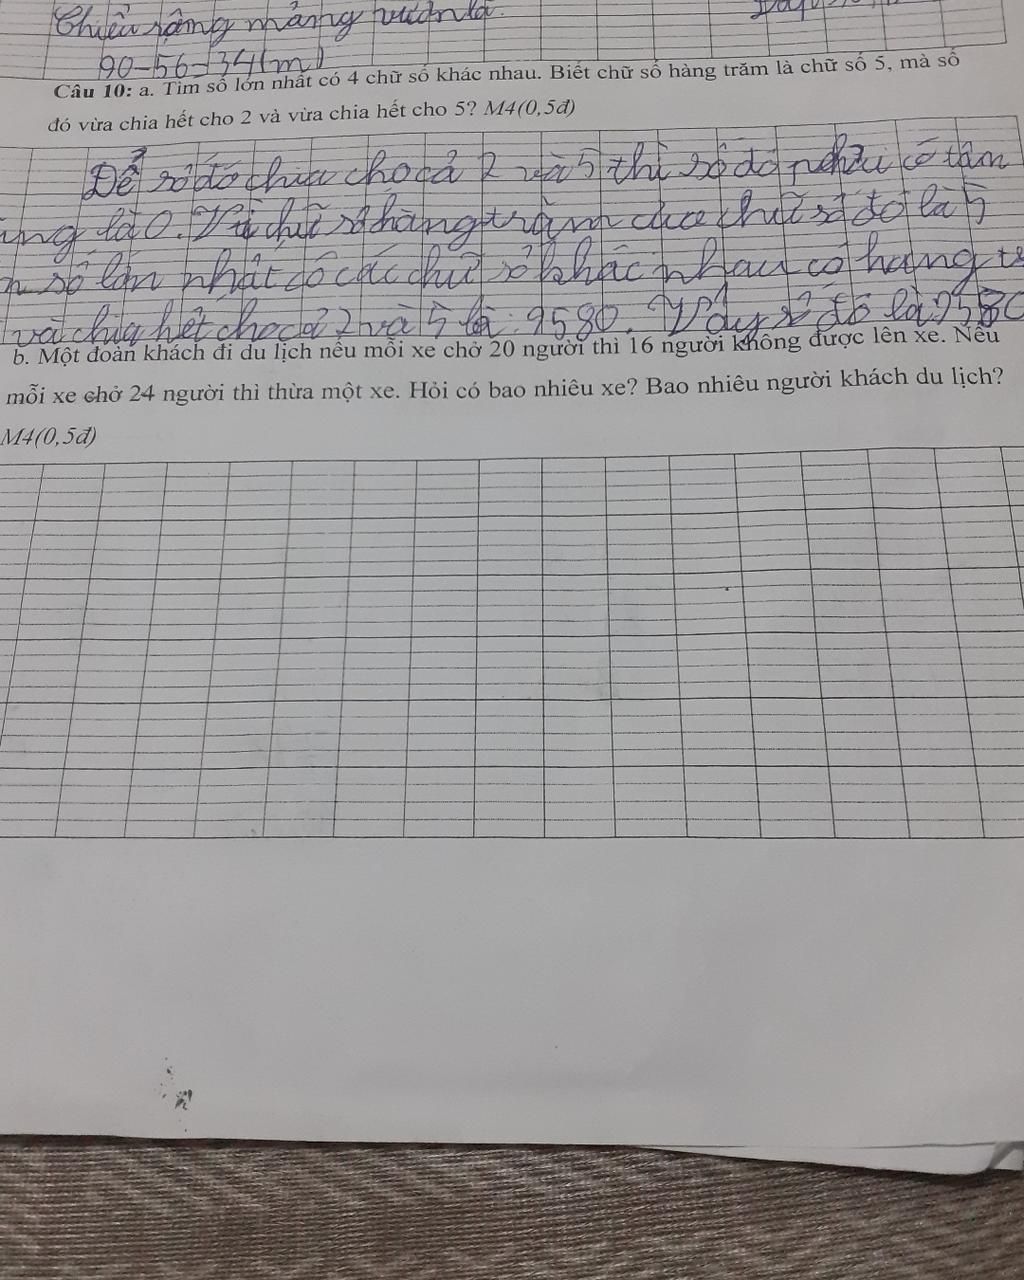 Chiều rộng mảng vườn là
90-56=34(m)
Câu 10: a. Tìm số lớn nhất có 4 chữ số khác nhau. Biết chữ số hàng trăm là chữ số 5, mà số
đó vừa chia hết cho 2 và vừa chia hết cho 5? M4(0,5đ)
Để số đó chia cho cả 2 và 5 thì số đó phải có tận
ùng là 0. Vì chữ số hàng trăm của chữ số đó là 5
n số lớn nhất có các chữ số khác nhau có hàng
và chia hết cho cả 2 và 5 là: 9580. Vậy số đó là: 9580
b. Một đoàn khách đi du lịch nếu mỗi xe chở 20 người thì 16 người không được lên xe. Nếu
mỗi xe chở 24 người thì thừa một xe. Hỏi có bao nhiêu xe? Bao nhiêu người khách du lịch?
M4(0,5đ)